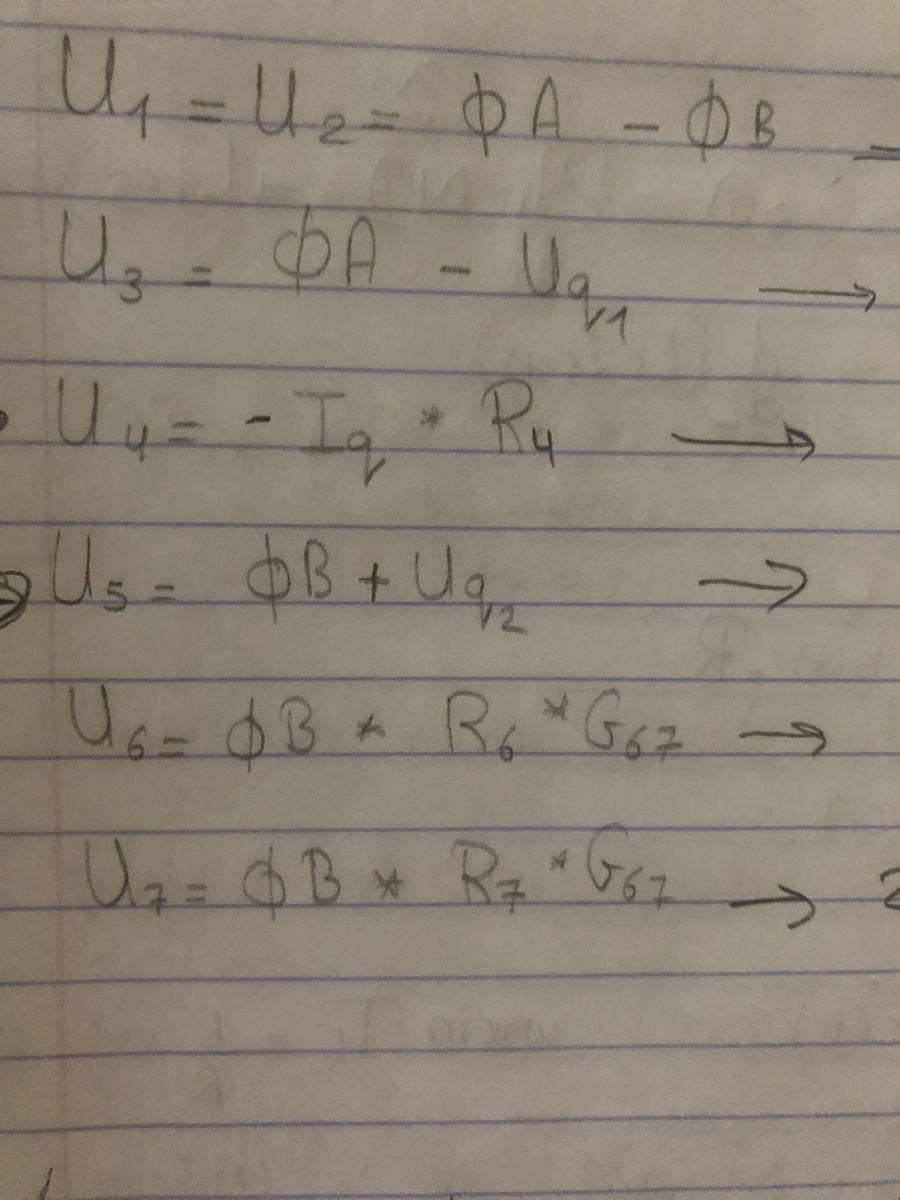 U₁ = U₂ = ϕA - ϕB
U₃ = ϕA - Uq₁ →
U₄ = - Iq * R₄ →
U₅ = ϕB + Uq₂ →
U₆ = ϕB * R₆ * G₆₇ →
U₇ = ϕB * R₇ * G₆₇ →